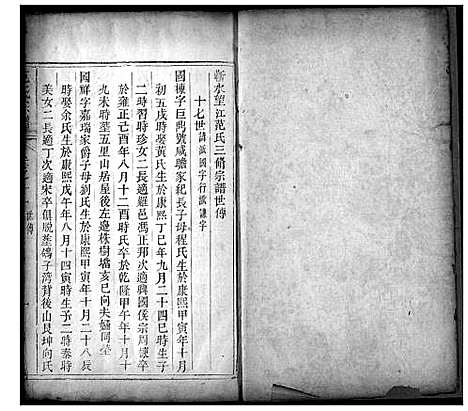 蘄水望江范氏三修宗譜世傳
十七世諱派國字行派謙字
國棟字巨昌號咸瞻家紀長子母程氏生於康熙甲寅年十月
初五戌時娶黃氏生於康熙丁巳年九月二十四巳時生子
二時習時珍女二長適羅邑馮正邦次適興國侯宗周壞卒
於雍正己酉年八月十二酉時氏卒於乾隆甲午年十月十
九未時墓五里山居屋後左邊株樹壋亥巳向夫婦同塋
國祥字嘉瑞家爵子母劉氏生於康熙甲寅年十月二十八辰
時娶余氏生於康熙戊午年八月十四寅時生子二時泰時
美女二長適丁次適宋卒俱脫塟鴿子湾背後山艮坤向氏
世傳